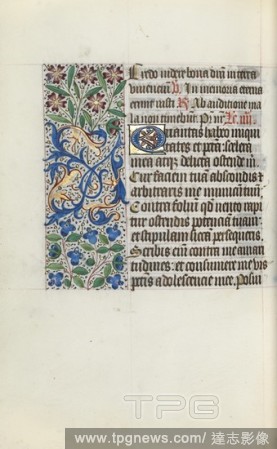 Credo videre bona dñi in terra
viventium V In memoria eterna
erit iusti R Ab auditione ma
la non timebit Pi nr̃ Le iiii
Quantas habeo iniqui
tates et pctã scelera
mea atqꝫ delicta ostende m
Cur faciem tuã abscondis et
arbitraris me inimicũ tuũ
Contra foliũ qd vento rapi
tur ostendis potentiã tuam
et stipulam siccã persequeris
Scribis eñ contra me amari
tudines et consumere me vis
pctis adolescencie mee Posui
TPG
www.tpgnews.com/達志影像